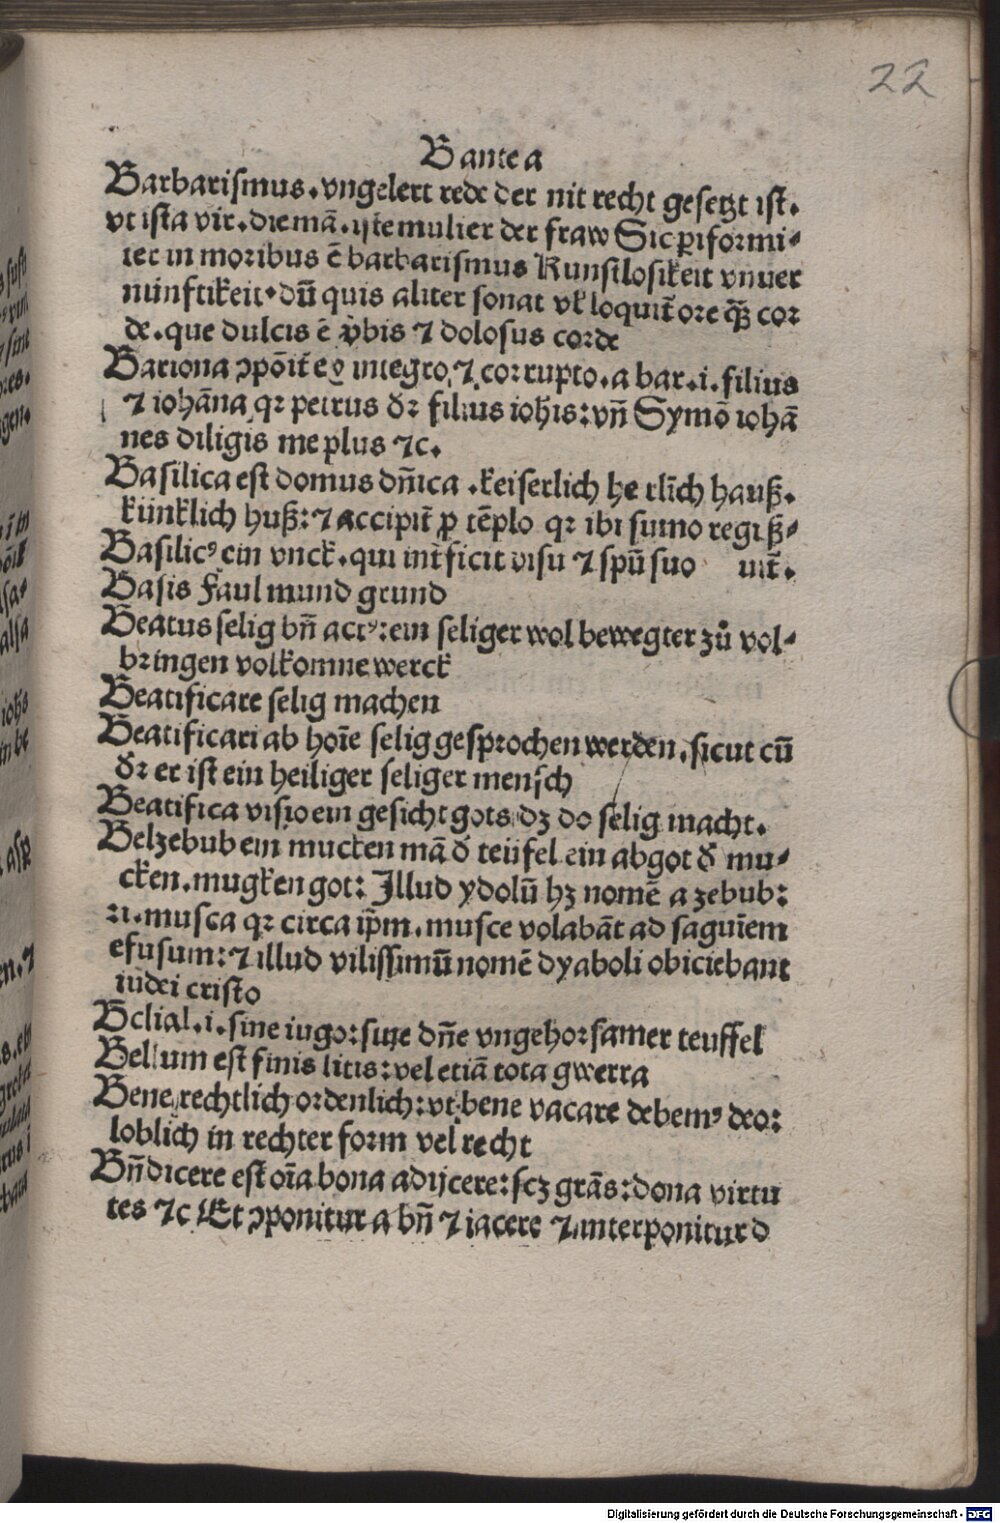 22
B ante a
Barbarismus. vngelert rede der nit recht gesetzt ist.
vt ista vir. die mā. iste mulier der fraw Sic ꝑiformi-
ter in moribus ē barbarismus Kunstlosikeit vnuer
nünftikeit. dū quis aliter sonat vl̄ loquit̄ ore q̄ȝ cor
de. que dulcis ē v̄bis ⁊ dolosus corde
Bariona ꝯpōit̄ ex integro, ⁊ corrupto. a bar. i. filius
⁊ iohāna qꝛ petrus dꝛ filius ioh̄is: vn̄ Symō iohā
nes diligis me plus ⁊c.
Basilica est domus dn̄ica .keiserlich he rlich hauß.
künklich huß: ⁊ accipit̄ ꝓ tēplo qꝛ ibi sumo regi ß-
Basilicꝰ ein vnck. qui int̄ficit visu ⁊ spū suo uit̄.
Basis Faulmund grund
Beatus selig bn̄ actꝰ: ein seliger wol bewegter zů vol-
bringen volkomne werck
Beatificare selig machen
Beatificari ab hoīe selig gesprochen werden. sicut cū
dꝛ er ist ein heiliger seliger mensch
Beatifica visio ein gesicht gots dz do selig macht.
Belzebub ein mucken mā d̄ teüfel ein abgot d̄ mu-
cken. mugken got: Illud ydolū hz nomē a zebub:
:i. musca qꝛ circa ip̄m. musce volabāt ad saguīem
efusum: ⁊ illud vilissimū nomē dyaboli obiciebant
iudei cristo
Belial. i. sine iugo: siue dn̄e vngehorsamer teuffel
Bellum est finis litis: vel etiā tota gwerra
Bene rechtlich ordenlich: vt bene vacare debemꝰ deo:
loblich in rechter form vel recht
Bn̄dicere est oīa bona adijcere: scz grās: dona virtu
tes ⁊c Et ꝯponitur a bn̄ ⁊ iacere ⁊ interponitur d
Digitalisierung gefördert durch die Deutsche Forschungsgemeinschaft - DFG